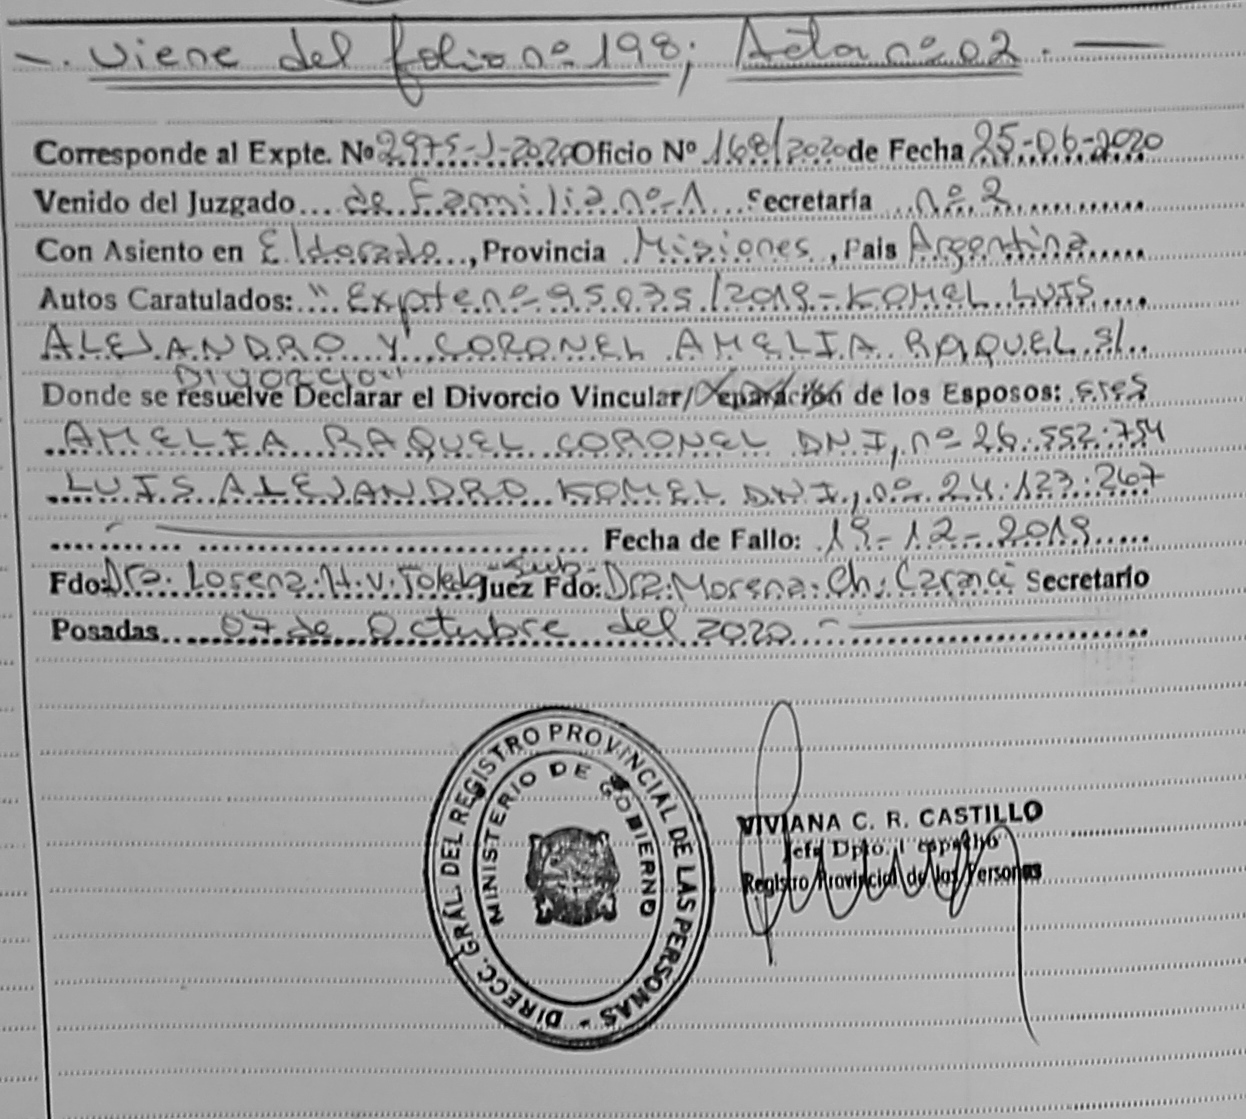 -. Viene del folio nº 198; Acta nº 02. —
Corresponde al Expte. Nº 2975-J-2020 Oficio Nº 168/2020 de Fecha 25-06-2020
Venido del Juzgado de Familia nº-1 Secretaría nº 2
Con Asiento en Eldorado, Provincia Misiones, País Argentina
Autos Caratulados: "Expte nº 95035/2019-KOMEL LUIS
ALEJANDRO Y CORONEL AMELIA RAQUEL S/
DIVORCIO"
Donde se resuelve Declarar el Divorcio Vincular/Separación de los Esposos:
AMELIA RAQUEL CORONEL DNI, nº 26.552.754
LUIS ALEJANDRO KOMEL DNI, nº 24.123.267
Fecha de Fallo: 19-12-2019
Fdo: Dra. Lorena H.V. Toledo Sub. Juez Fdo: Dra. Morena Ch. Secretario
Posadas 07 de Octubre del 2020 -
DIRECC. GRAL. DEL REGISTRO PROVINCIAL DE LAS PERSONAS -
MINISTERIO DE GOBIERNO
VIVIANA C. R. CASTILLO
Jefa Dpto. Despacho
Registro Provincial de las Personas